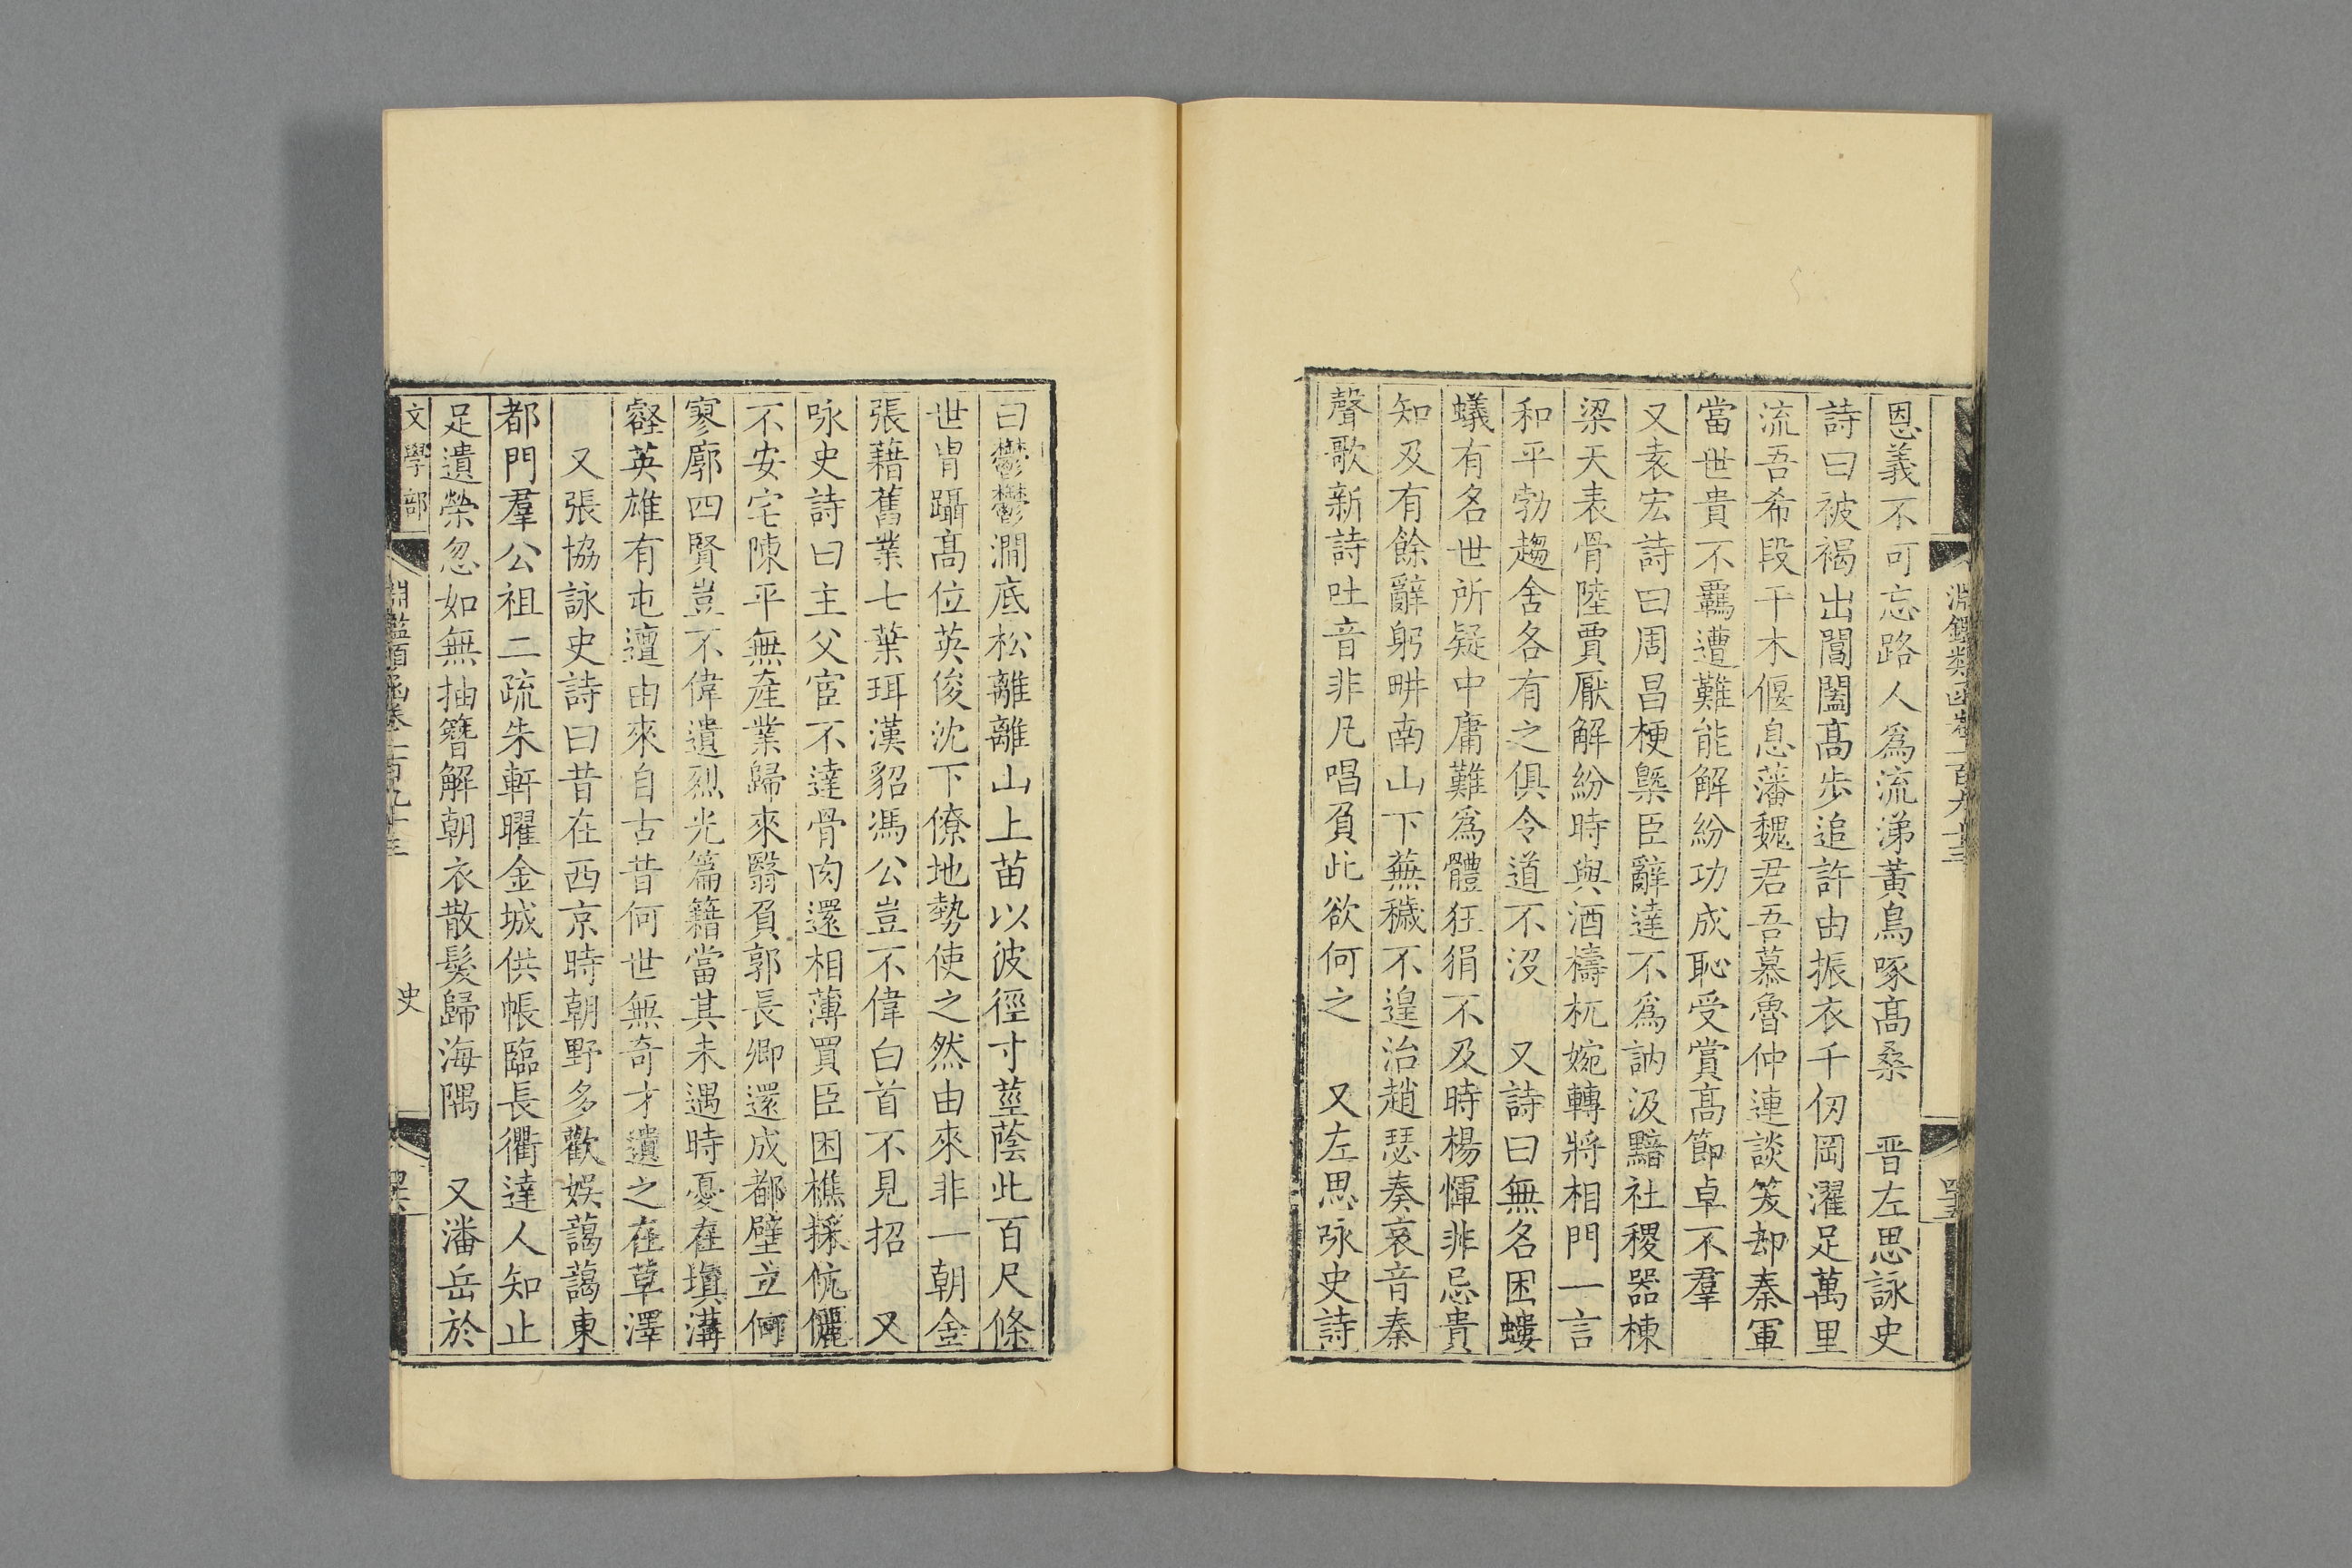 淵鑑類函卷一百九十三
恩義不可忘路人爲流涕黃鳥啄高桑　晋左思詠史
詩曰被褐出閶闔高歩追許由振衣千仞岡濯足萬里
流吾希段干木偃息藩魏君吾慕魯仲連談笑却秦軍
當世貴不羈遭難能解紛功成恥受賞高節卓不羣
又袁宏詩曰周昌梗槩臣辭達不爲訥汲黯社稷器棟
梁天表骨陸賈厭解紛時與酒檮杌婉轉將相門一言
和平勃趨舍各有之俱令道不沒　又詩曰無名困螻
蟻有名世所疑中庸難爲體狂狷不及時楊惲非忌貴
知及有餘辭躬畊南山下蕪穢不遑治趙瑟奏哀音秦
聲歌新詩吐音非凡唱負此欲何之　又左思詠史詩
曰鬱鬱澗底松離離山上苗以彼徑寸莖蔭此百尺條
世胄躡高位英俊沈下僚地勢使之然由來非一朝金
張藉舊業七葉珥漢貂馮公豈不偉白首不見招　又
咏史詩曰主父宦不達骨肉還相薄買臣困樵採伉儷
不安宅陳平無產業歸來翳負郭長卿還成都壁立何
寥廓四賢豈不偉遺烈光篇籍當其未遇時憂在塡溝
壑英雄有屯邅由來自古昔何世無奇才遺之在草澤
又張協詠史詩曰昔在西京時朝野多歡娛藹藹東
都門羣公祖二疏朱軒曜金城供帳臨長衢達人知止
足遺榮忽如無抽簪解朝衣散髮歸海隅　又潘岳於
文學部　淵鑑類函卷一百九十三　史